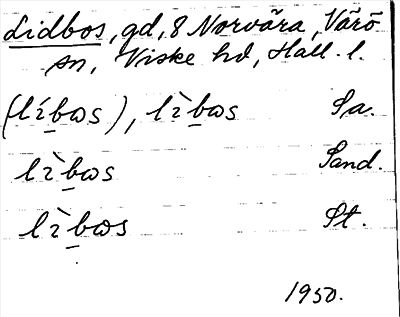 Lidbos, gd, 8 Norvära, Värö
sn, Viske hd, Hall. l.
(lı́b̲ωs), lı̀b̲ωs Sa.
lı̀b̲ωs Sand.
lı̀b̲ωs St.
1950.